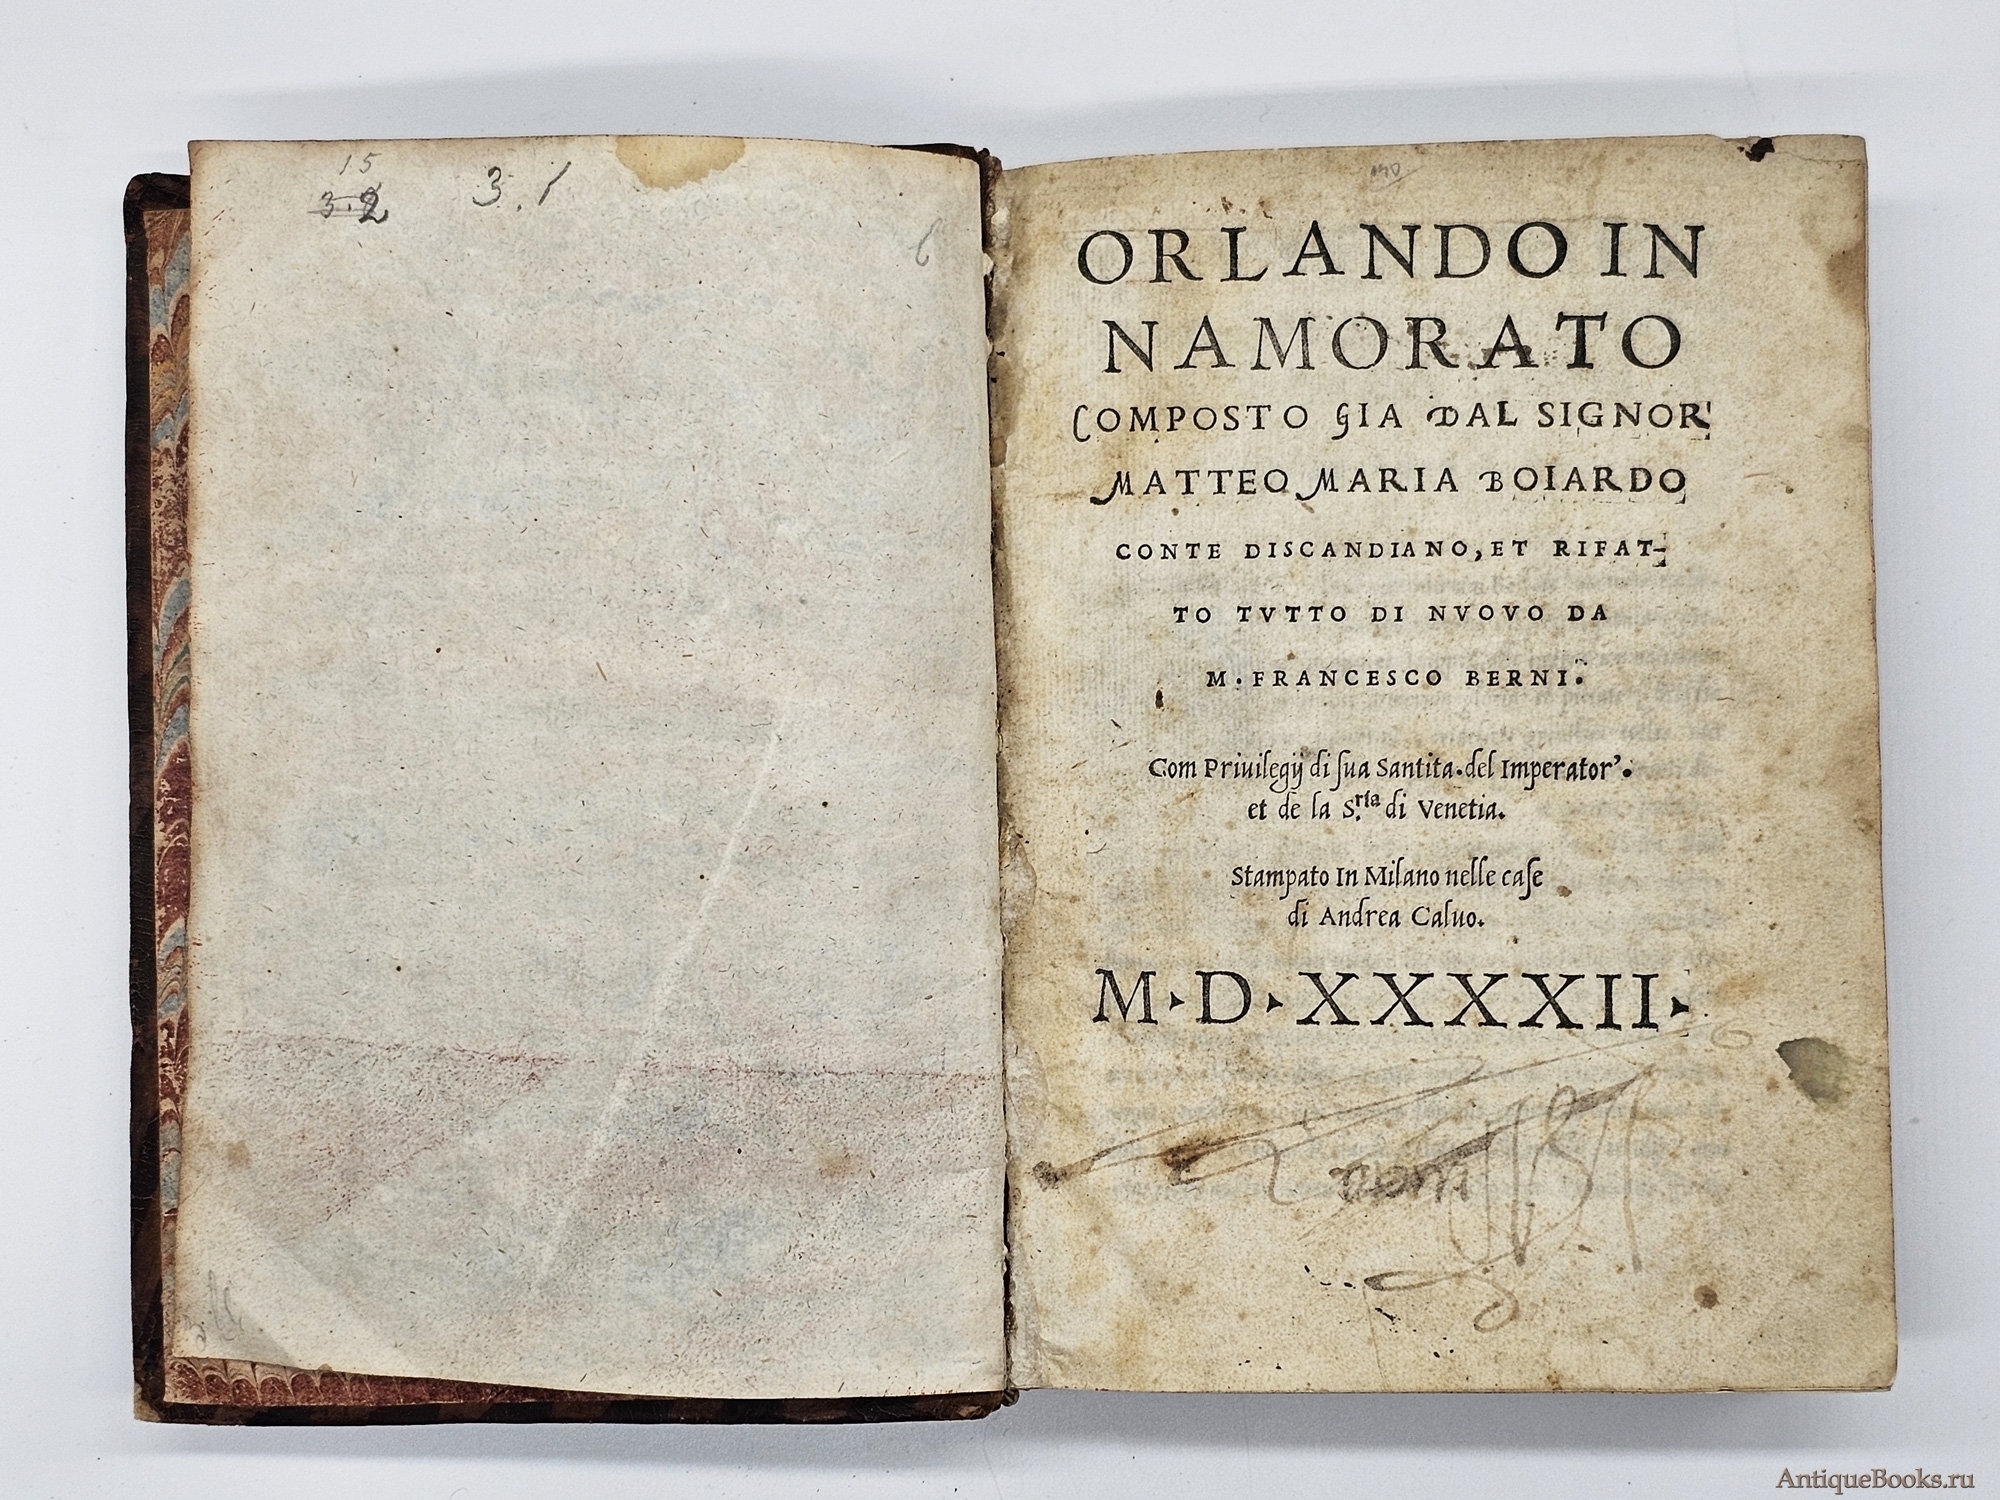 15
3.2
3.1
6
ORLANDO IN
NAMORATO
COMPOSTO GIA DAL SIGNOR'
MATTEO MARIA BOIARDO
CONTE DISCANDIANO, ET RIFAT-
TO TVTTO DI NVOVO DA
M. FRANCESCO BERNI.
Com Priuilegij di sua Santita. del Imperator'.
et de la S.ria di Venetia.
Stampato In Milano nelle case
di Andrea Caluo.
M. D. XXXXII.
AntiqueBooks.ru